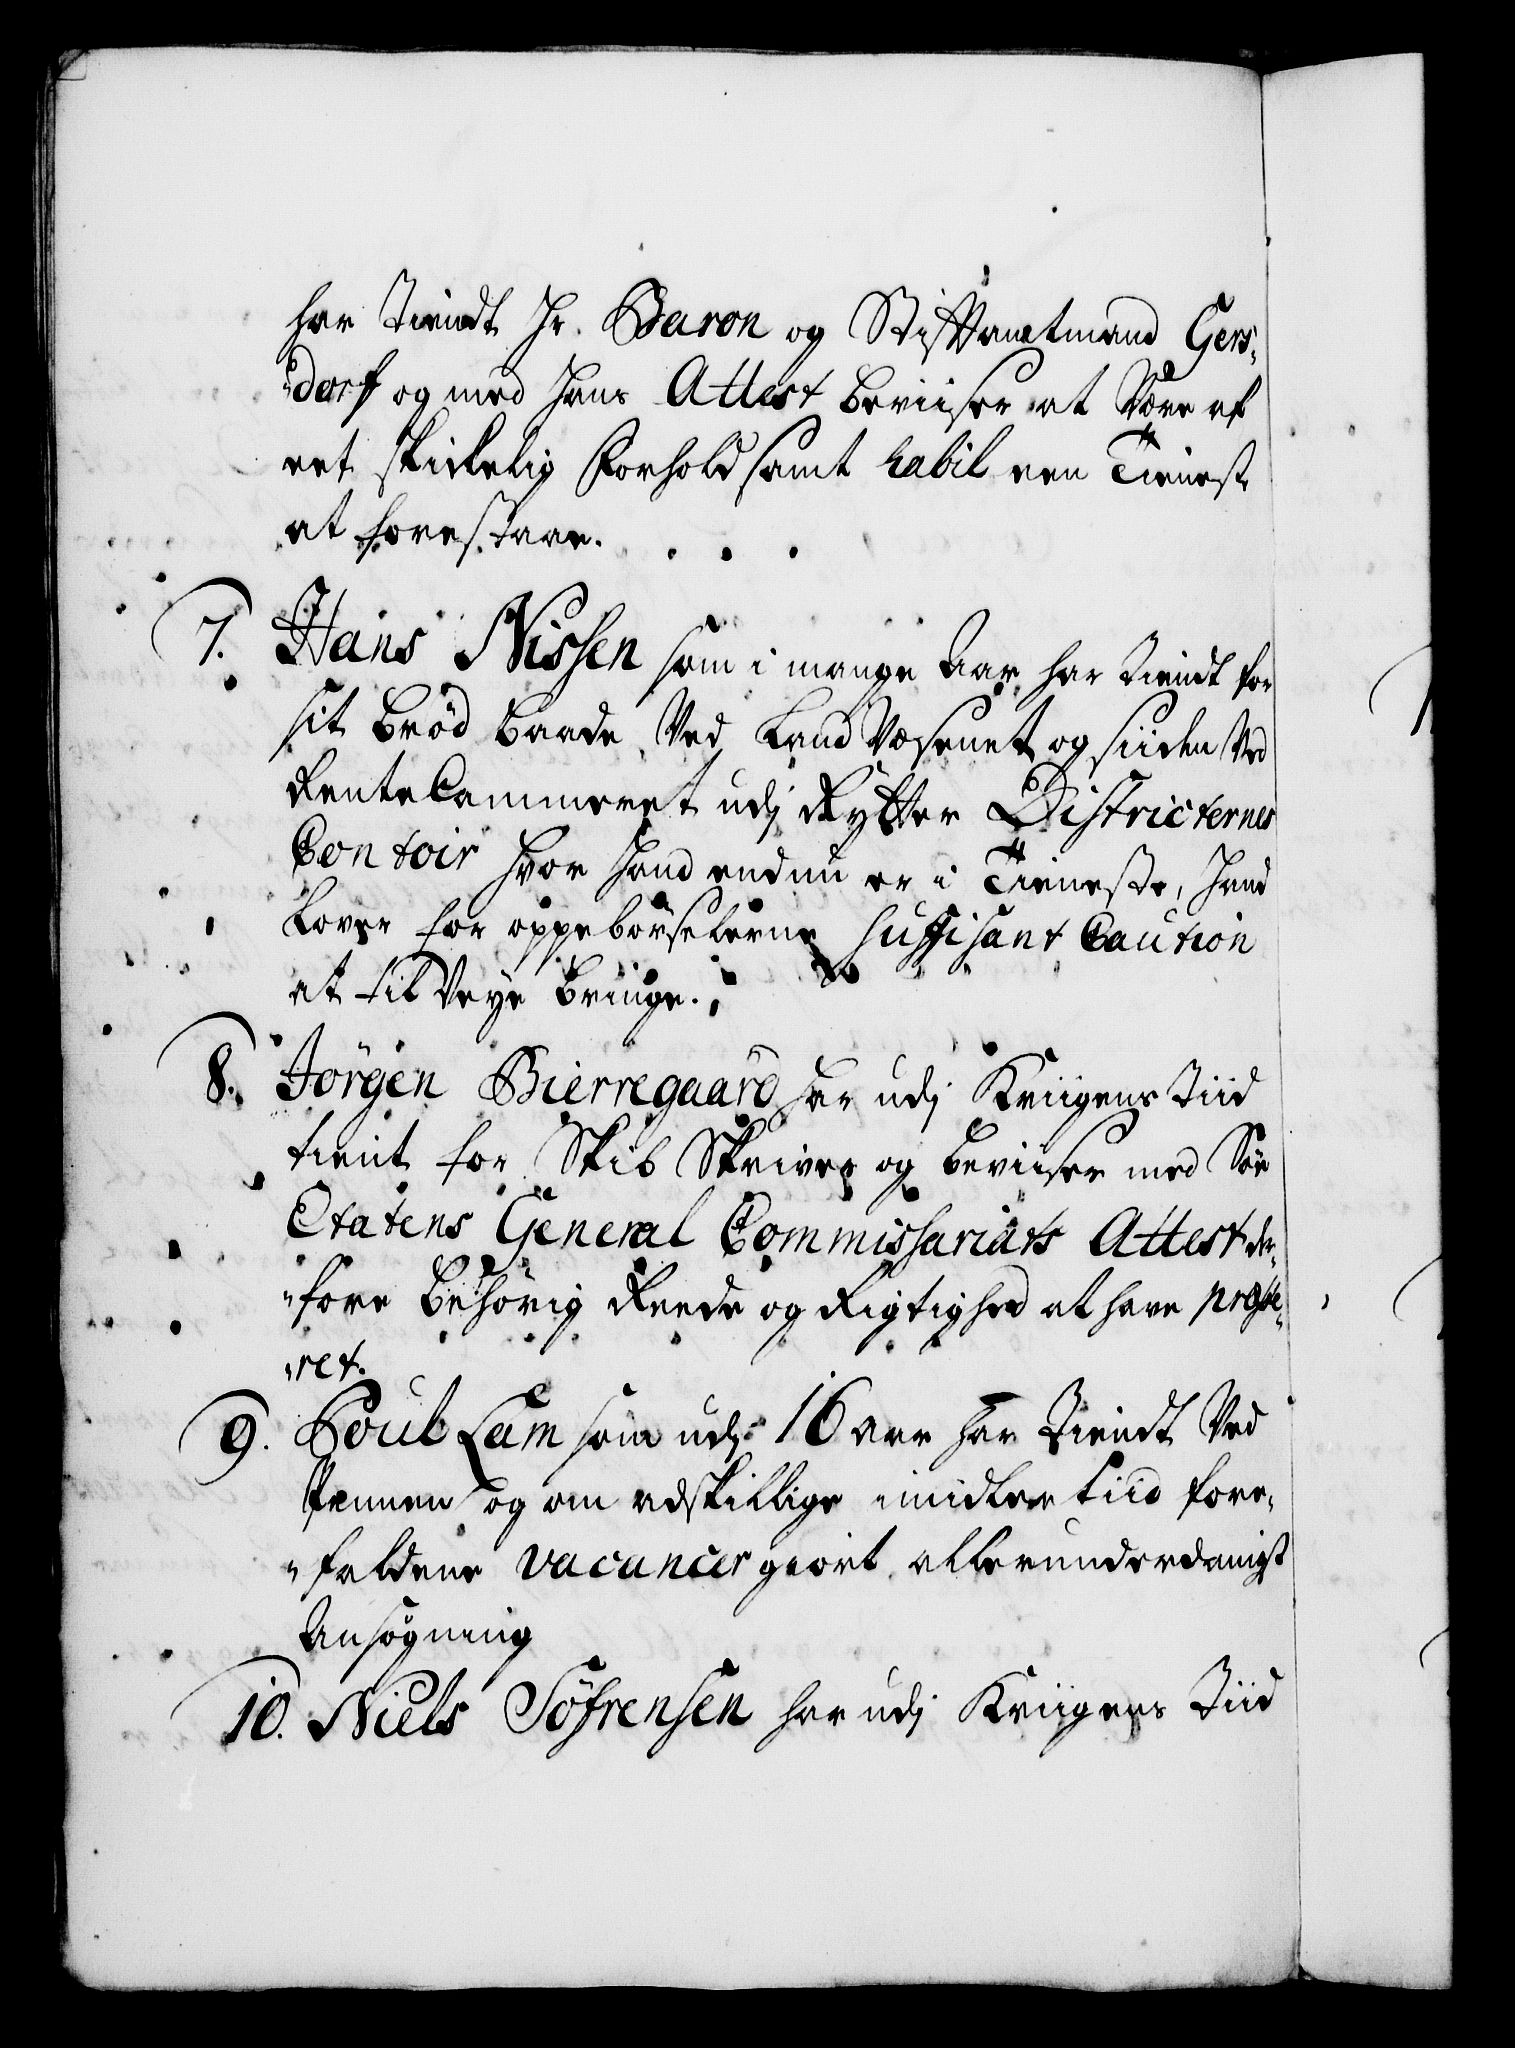 har tient Hr. Baron og Stiftamtmand Gers-
dorf og med hans Attest beviiser at være af
eet skickelig Forhold samt habil een Tienest
at forestaae.
7. Hans Nissen som i mange Aar har tiendt for
sit brød baade ved Land Væsenet og siiden ved
RenteCammeret udj Rytter Districternes
Contoir hvor hand endnu er i Tieneste, hand
lover for oppebørselerne suffisant Caution
at tilveye bringe.
8. Jørgen Bierregaard har udj Kriigens Tiid
tient for Skib Skriver og beviiser med Søe
Etatens General Commissariats Attest der-
fore behørig Reede og Rigtighed at have præste-
ret.
9. Poul Lam som udj 16 aar har tiendt ved
Pennen og om adskillige imidler tiid fore-
faldene vacancer giort allerunderdanigst
Ansøgning
10. Niels Söfrensen har udj Kriigens Tiid